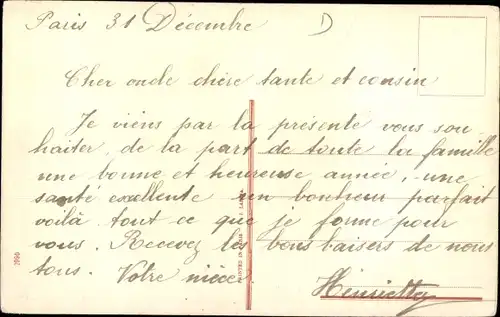 Paris 31 Décembre D
Cher oncle chère tante et cousin
Je viens par la présente vous sou-
haiter, de la part de toute la famille
une bonne et heureuse année, une
santé excellente un bonheur parfait
voilà tout ce que je forme pour
vous. Recevez les bons baisers de nous
tous. Votre nièce.
Henrietta